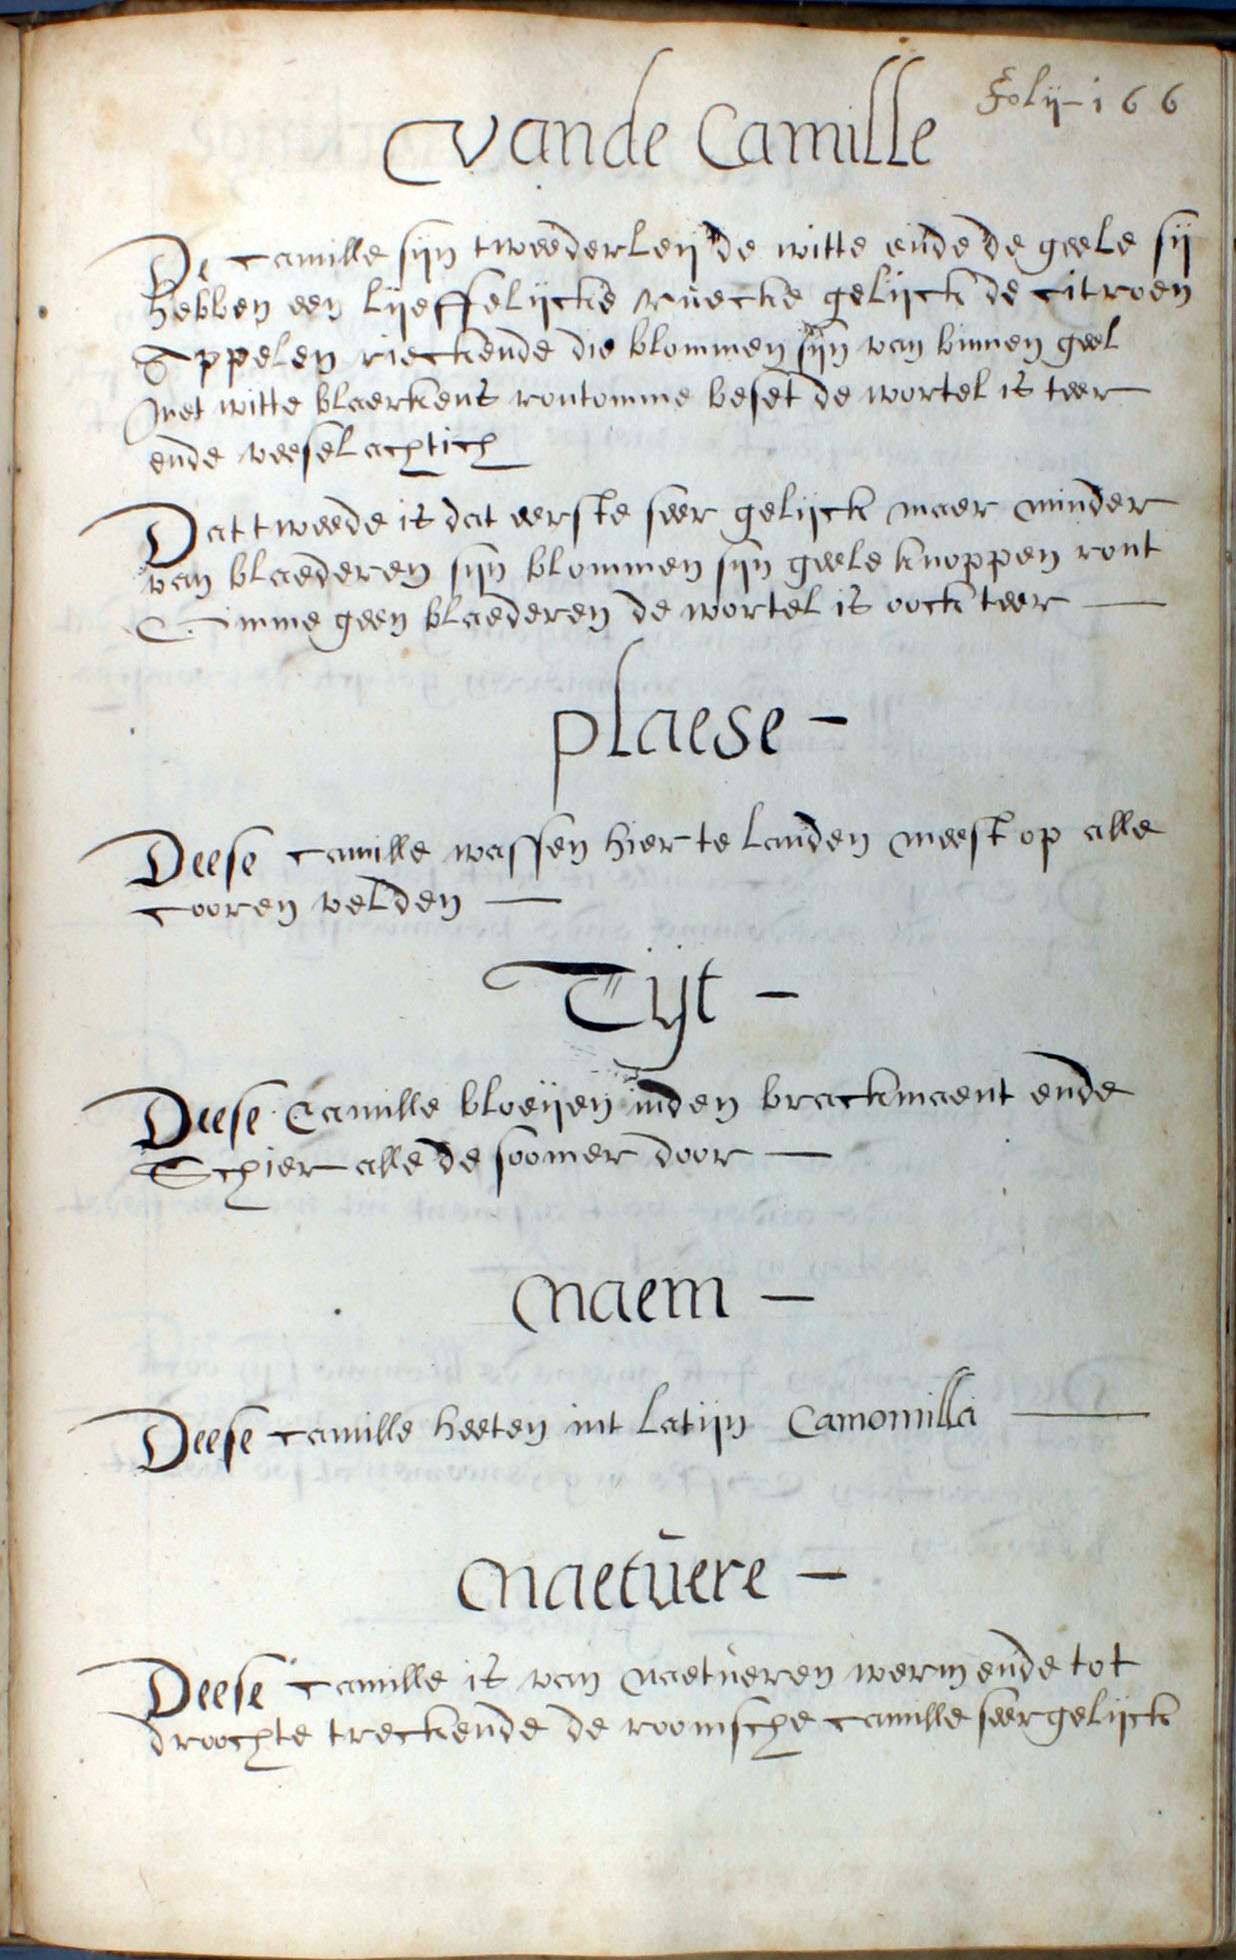 Folij 166
Vande Camille
De camille sijn tweederleij de witte ende de geele sij
hebben een lijeffelijcke ruecke gelijck de citroen
Appelen rieckende die blommen sijn van binnen geel
Met witte blaerkens rontomme beset de wortel is teer
ende veeselachtich
Dat tweede is dat eerste seer gelijck maer minder
van blaederen sijn blommen sijn geele knoppen ront
Omme geen blaederen de wortel is oock teer —
plaese –
Deese camille wassen hier te landen meest op alle
cooren velden —
Tijt –
Deese Camille bloeijen inden brackmaent ende
Schier alle de soomer door —
Naem –
Deese camille heeten int latijn Camomilla —
Naetuere –
Deese camille is van naetueren werm ende tot
droochte treckende de roomsche camille seer gelijck